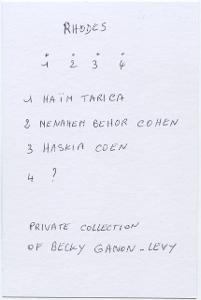 RHODES
1 2 3 4
1 HAÏM TARICA
2 MENAHEM BEHOR COHEN
3 HASKIA COEN
4 ?
PRIVATE COLLECTION
OF BECKY GANON-LEVY